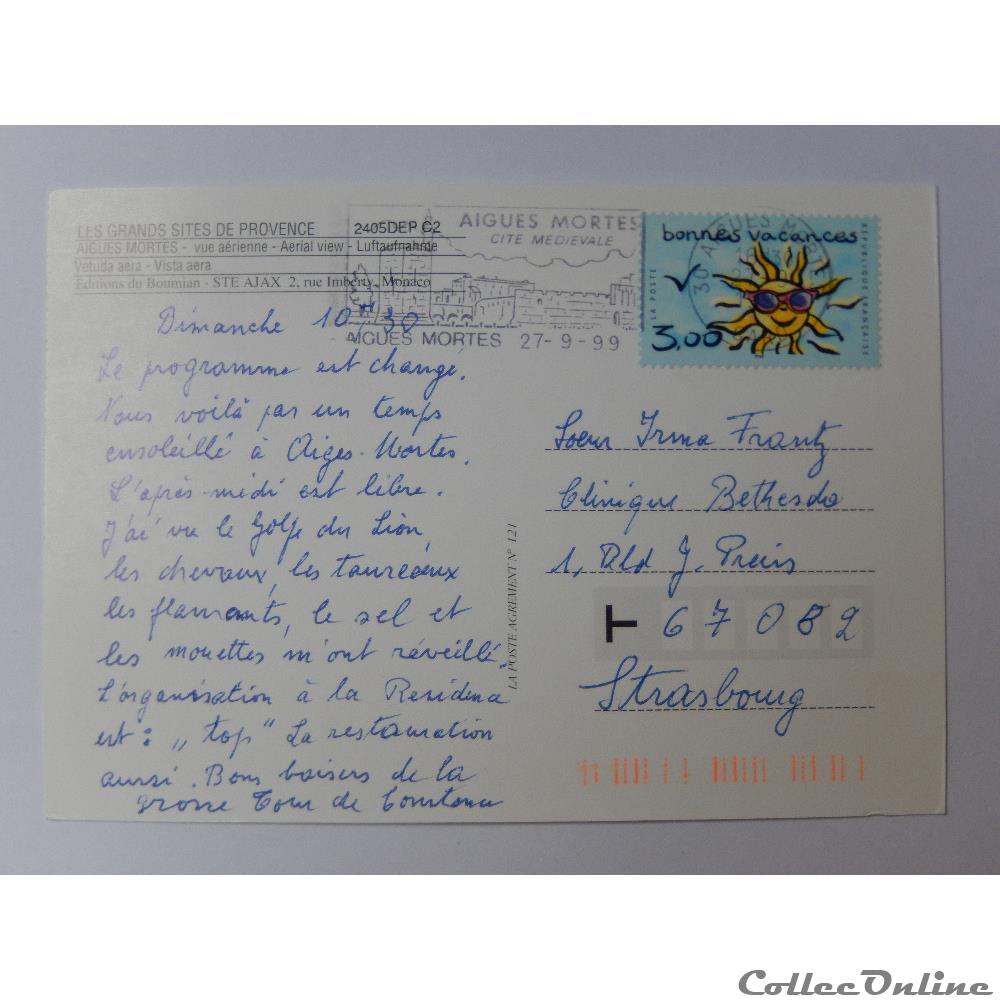 LES GRANDS SITES DE PROVENCE 2405DEP C2
AIGUES MORTES - vue aérienne - Aerial view - Luftaufnahme
Veduta aera - Vista aera
Editions du Boumian - STE AJAX 2, rue Imberty, Monaco
AIGUES MORTES
CITE MEDIEVALE
AIGUES MORTES 27-9-99
30 AIGUES MORTES
bonnes vacances
LA POSTE
RÉPUBLIQUE FRANÇAISE
3,00
Dimanche 10H30
Le programme est changé.
Nous voilà par un temps
ensoleillé à Aiges-Mortes.
L'après-midi est libre.
J'ai vu le Golfe du Lion,
les chevaux, les taureaux
les flamants, le sel et
les mouettes m'ont réveillé.
L'organisation à la Residence
est : „top" La restauration
aussi. Bons baisers de la
grosse Tour de Constance
LA POSTE AGREMENT N° 121
Soeur Irma Frantz
Clinique Bethesda
1, Bld J. Preis
T 67082
Strasbourg
CollecOnline